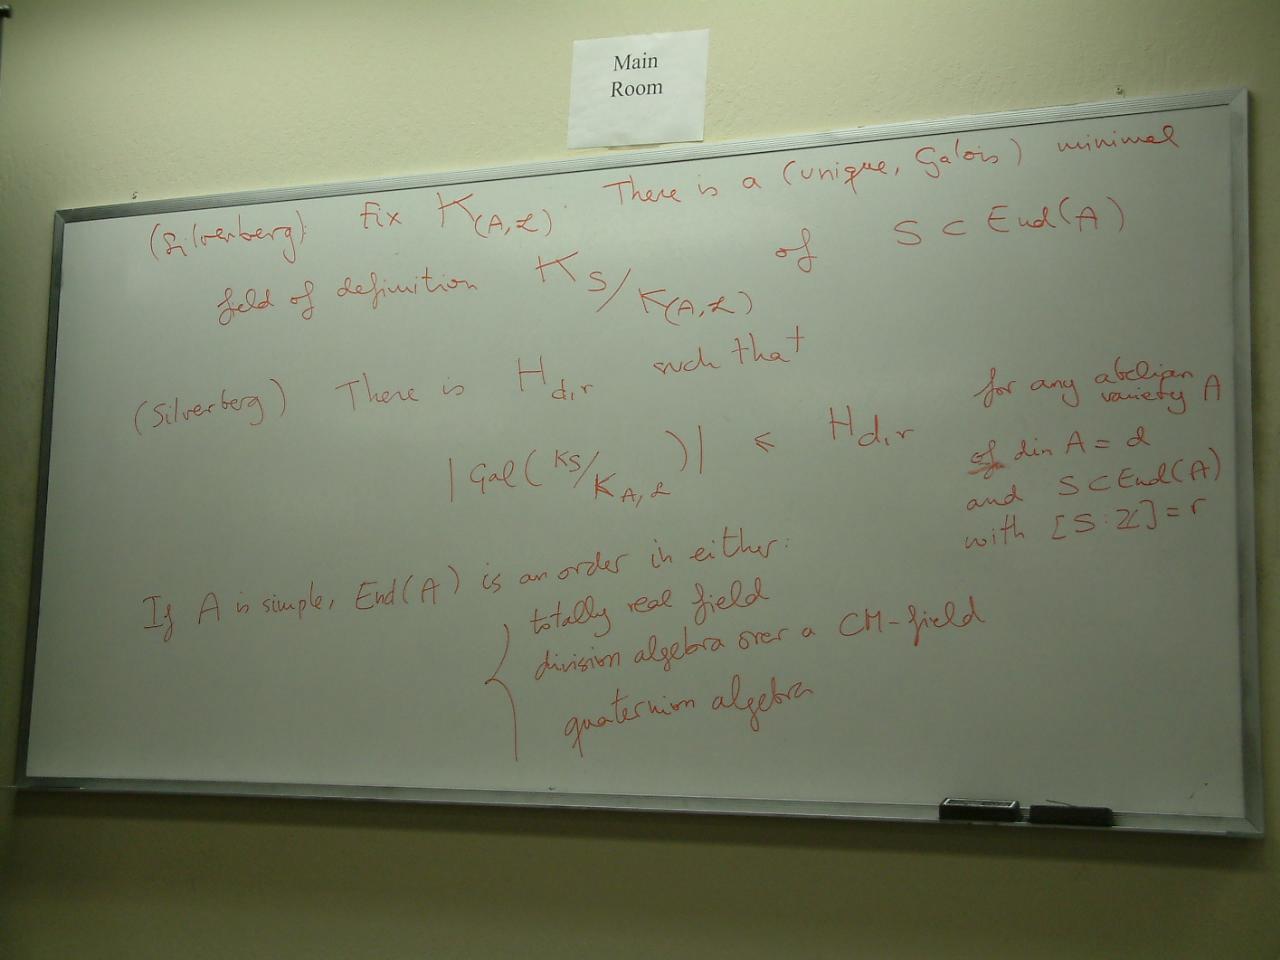 Main
Room
(Silverberg): Fix K(A,ℒ). There is a (unique, Galois) minimal
field of definition K_S/K(A,ℒ) of S ⊂ End(A)
(Silverberg) There is H_{d,r} such that
|Gal(K_S/K_{A,ℒ})| ≤ H_{d,r}
for any abelian
variety A
of dim A = d
and S ⊂ End(A)
with [S:ℤ] = r
If A is simple, End(A) is an order in either:
totally real field
division algebra over a CM-field
quaternion algebra